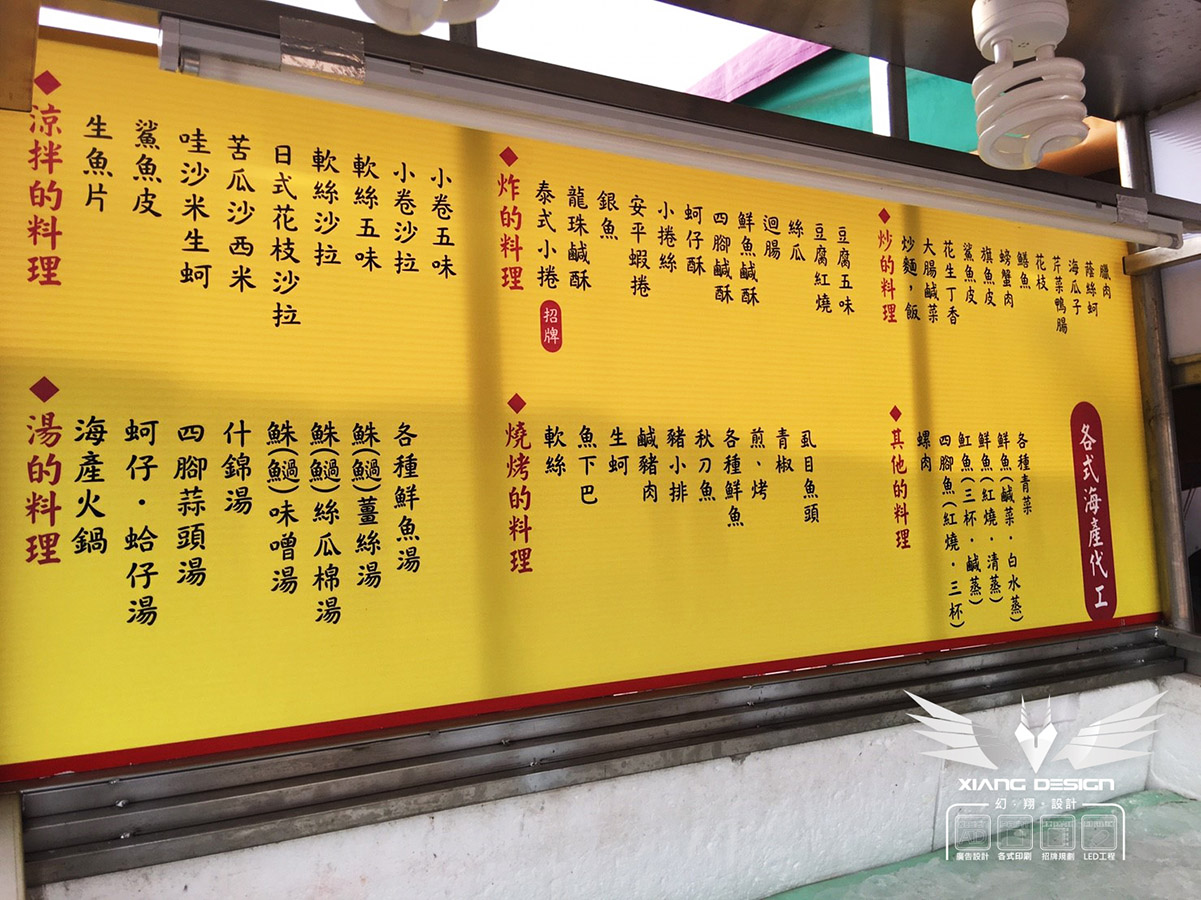 ◆涼拌的料理
生魚片
鯊魚皮
哇沙米生蚵
苦瓜沙西米
日式花枝沙拉
軟絲沙拉
軟絲五味
小卷沙拉
小卷五味
◆炸的料理
泰式小捲
招牌
龍珠鹹酥
銀魚
安平蝦捲
小捲絲
蚵仔酥
四腳鹹酥
鮮魚鹹酥
迴腸
絲瓜
豆腐紅燒
豆腐五味
◆炒的料理
炒麵，飯
大腸鹹菜
花生丁香
鯊魚皮
旗魚皮
螃蟹肉
鱔魚
花枝
芹菜鴨腸
海瓜子
蔭絲蚵
臘肉
◆湯的料理
海產火鍋
蚵仔．蛤仔湯
四腳蒜頭湯
什錦湯
鮢(䱟)味噌湯
鮢(䱟)絲瓜棉湯
鮢(䱟)薑絲湯
各種鮮魚湯
◆燒烤的料理
軟絲
魚下巴
生蚵
鹹豬肉
豬小排
秋刀魚
各種鮮魚
煎、烤
青椒
虱目魚頭
◆其他的料理
螺肉
四腳魚(紅燒．三杯)
魟魚(三杯．鹹蒸)
鮮魚(紅燒．清蒸)
鮮魚(鹹菜．白水蒸)
各種青菜
各式海產代工
XIANG DESIGN
幻．翔．設計
廣告設計 各式印刷 招牌規劃 LED工程